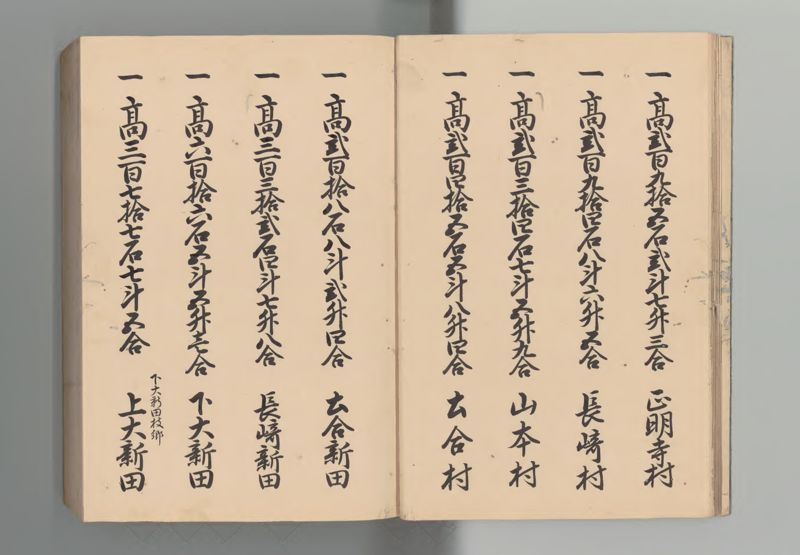 一高弐百九拾五石弐斗七升三合 正明寺村
一高弐百九拾四石八斗六升五合 長崎村
一高弐百三拾四石七斗五升九合 山本村
一高弐百四拾五石五斗八升四合 土合村
一高弐百拾八石八斗弐升四合 土合新田
一高三百三拾弐石四斗七升八合 長崎新田
一高六百拾六石五斗五升壱合 下大新田
下大新田枝郷
一高三百七拾七石七斗五合 上大新田